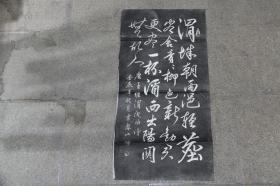 渭城朝雨浥輕塵
客舍青青柳色新勸君
更盡一杯酒西出陽關
無故人